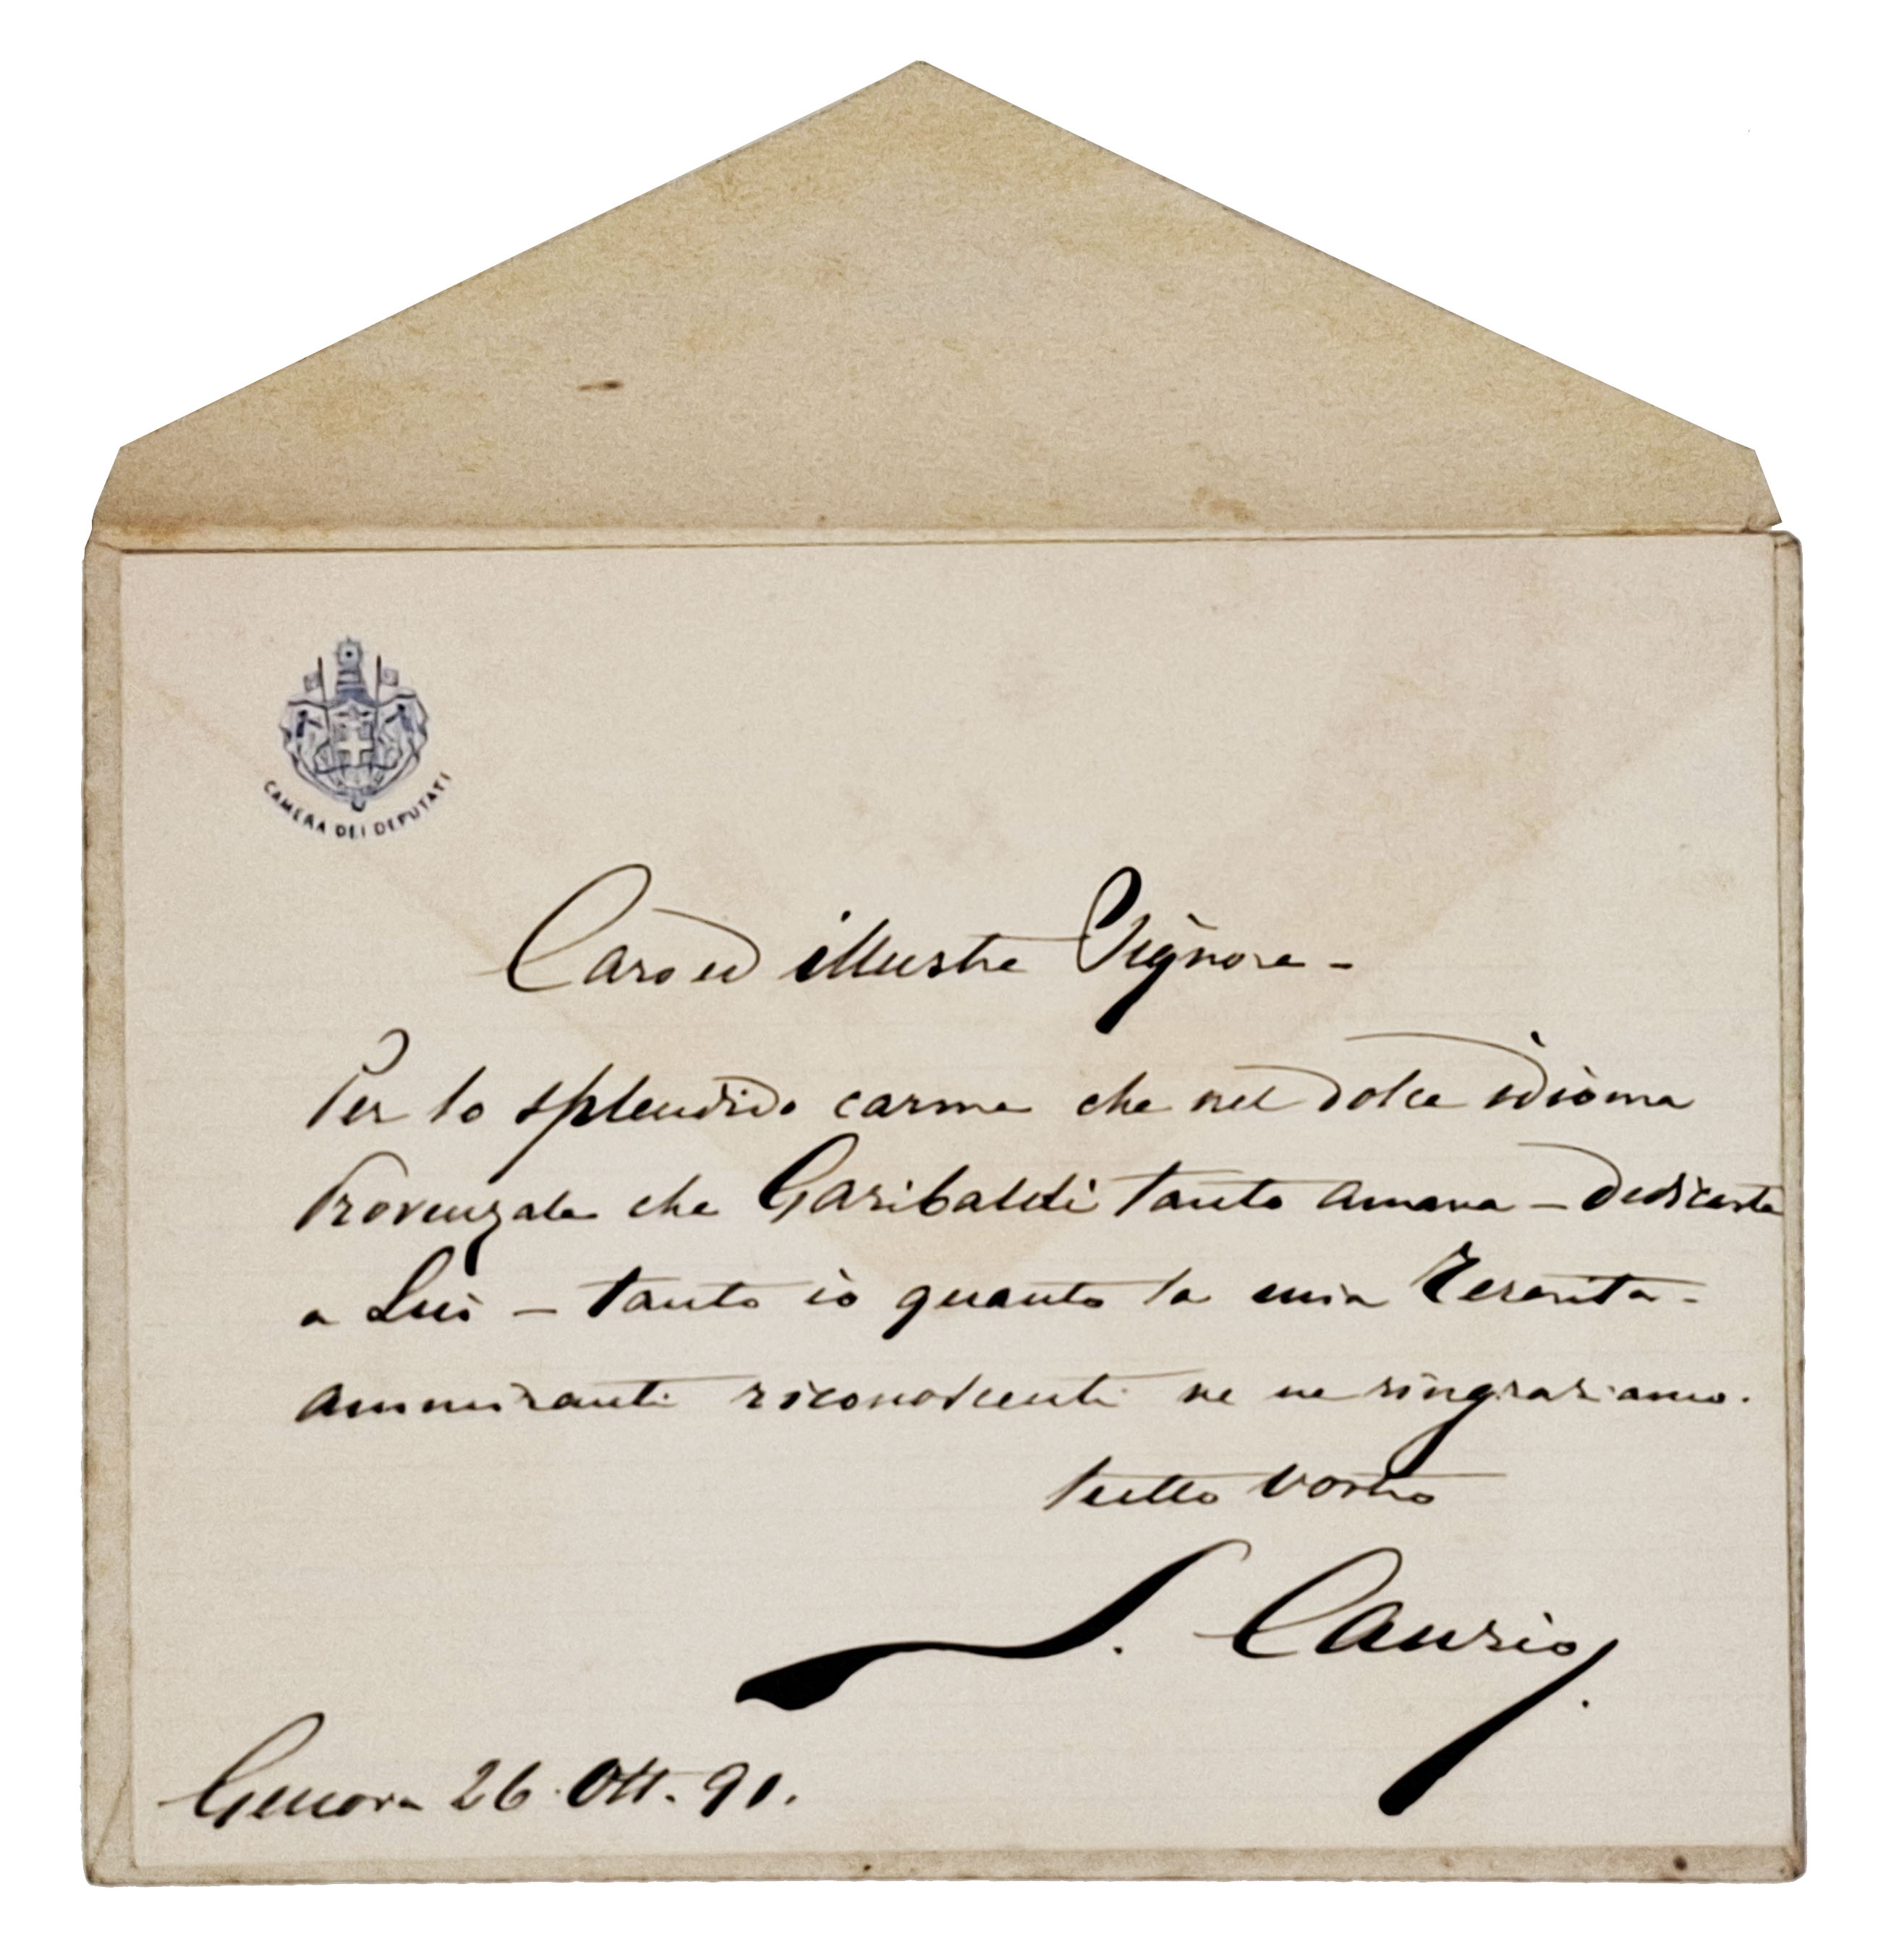 CAMERA DEI DEPUTATI
Caro ed illustre Signore -
Per lo splendido carme che nel dolce idioma
Provenzale che Garibaldi tanto amava - dedicaste
a Lui - tanto io quanto la mia Teresita -
ammiranti riconoscenti ve ne ringraziamo.
tutto vostro
S. Canzio
Genova 26. Ott. 91.